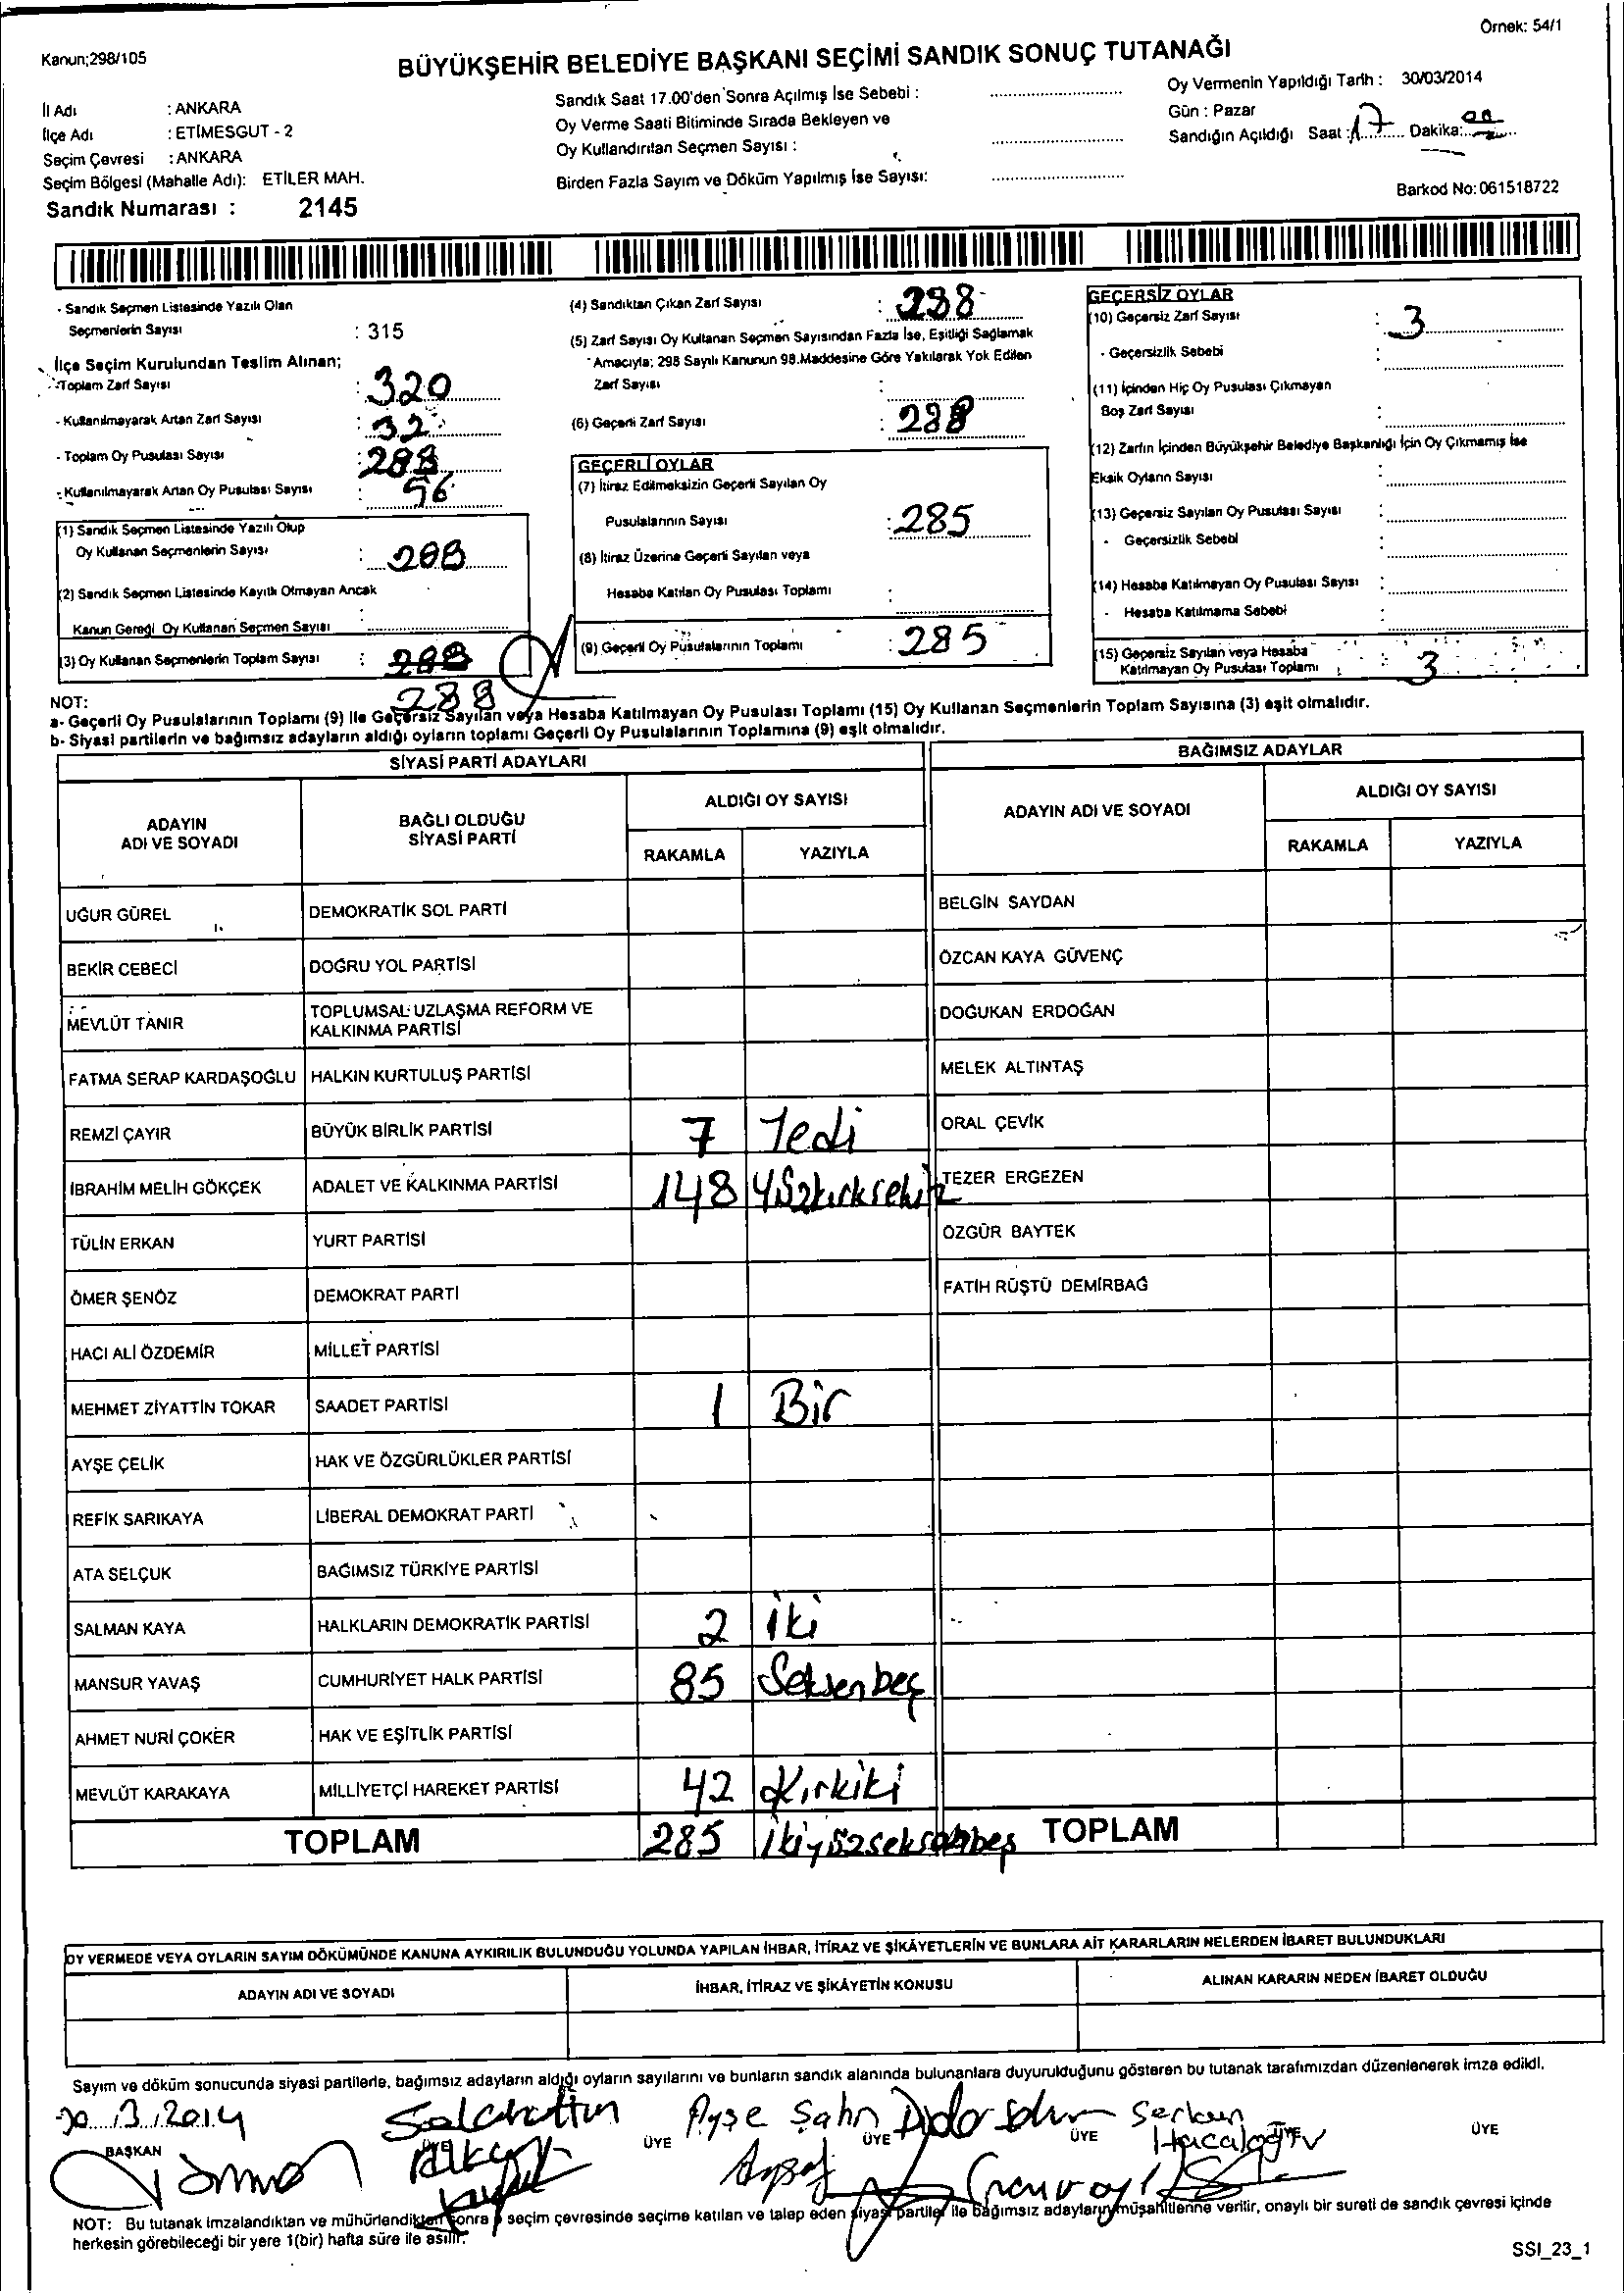 Örnek: 54/1
Kanun;298/105
BÜYÜKŞEHİR BELEDİYE BAŞKANI SEÇİMİ SANDIK SONUÇ TUTANAĞI
İl Adı : ANKARA
İlçe Adı : ETİMESGUT - 2
Seçim Çevresi : ANKARA
Seçim Bölgesi (Mahalle Adı): ETİLER MAH.
Sandık Numarası : 2145
Sandık Saat 17.00'den Sonra Açılmış İse Sebebi :
Oy Verme Saati Bitiminde Sırada Bekleyen ve
Oy Kullandırılan Seçmen Sayısı :
Birden Fazla Sayım ve Döküm Yapılmış İse Sayısı:
Oy Vermenin Yapıldığı Tarih : 30/03/2014
Gün : Pazar
Sandığın Açıldığı Saat : 17 Dakika: 00
Barkod No: 061518722
- Sandık Seçmen Listesinde Yazılı Olan
Seçmenlerin Sayısı : 315
İlçe Seçim Kurulundan Teslim Alınan;
- Toplam Zarf Sayısı : 320
- Kullanılmayarak Artan Zarf Sayısı : 32
- Toplam Oy Pusulası Sayısı : 288
- Kullanılmayarak Artan Oy Pusulası Sayısı : 96
(1) Sandık Seçmen Listesinde Yazılı Olup
Oy Kullanan Seçmenlerin Sayısı : 288
(2) Sandık Seçmen Listesinde Kayıtlı Olmayan Ancak
Kanun Gereği Oy Kullanan Seçmen Sayısı :
(3) Oy Kullanan Seçmenlerin Toplam Sayısı : 288
288
(4) Sandıktan Çıkan Zarf Sayısı : 288
(5) Zarf Sayısı Oy Kullanan Seçmen Sayısından Fazla İse, Eşitliği Sağlamak
Amacıyla; 298 Sayılı Kanunun 98.Maddesine Göre Yakılarak Yok Edilen
Zarf Sayısı :
(6) Geçerli Zarf Sayısı : 288
GEÇERLİ OYLAR
(7) İtiraz Edilmeksizin Geçerli Sayılan Oy
Pusulalarının Sayısı : 285
(8) İtiraz Üzerine Geçerli Sayılan veya
Hesaba Katılan Oy Pusulası Toplamı :
(9) Geçerli Oy Pusulalarının Toplamı : 285
GEÇERSİZ OYLAR
(10) Geçersiz Zarf Sayısı : 3
- Geçersizlik Sebebi :
(11) İçinden Hiç Oy Pusulası Çıkmayan
Boş Zarf Sayısı :
(12) Zarfın İçinden Büyükşehir Belediye Başkanlığı İçin Oy Çıkmamış İse
Eksik Oyların Sayısı :
(13) Geçersiz Sayılan Oy Pusulası Sayısı :
- Geçersizlik Sebebi :
(14) Hesaba Katılmayan Oy Pusulası Sayısı :
- Hesaba Katılmama Sebebi :
(15) Geçersiz Sayılan veya Hesaba
Katılmayan Oy Pusulası Toplamı : 3
NOT:
a- Geçerli Oy Pusulalarının Toplamı (9) İle Geçersiz Sayılan veya Hesaba Katılmayan Oy Pusulası Toplamı (15) Oy Kullanan Seçmenlerin Toplam Sayısına (3) eşit olmalıdır.
b- Siyasi partilerin ve bağımsız adayların aldığı oyların toplamı Geçerli Oy Pusulalarının Toplamına (9) eşit olmalıdır.
SİYASİ PARTİ ADAYLARI BAĞIMSIZ ADAYLAR
ADAYIN ADI VE SOYADI
BAĞLI OLDUĞU SİYASİ PARTİ
ALDIĞI OY SAYISI
RAKAMLA YAZIYLA
ADAYIN ADI VE SOYADI
ALDIĞI OY SAYISI
RAKAMLA YAZIYLA
UĞUR GÜREL DEMOKRATİK SOL PARTİ BELGİN SAYDAN
BEKİR CEBECİ DOĞRU YOL PARTİSİ ÖZCAN KAYA GÜVENÇ
MEVLÜT TANIR TOPLUMSAL UZLAŞMA REFORM VE KALKINMA PARTİSİ DOĞUKAN ERDOĞAN
FATMA SERAP KARDAŞOĞLU HALKIN KURTULUŞ PARTİSİ MELEK ALTINTAŞ
REMZİ ÇAYIR BÜYÜK BİRLİK PARTİSİ 7 Yedi ORAL ÇEVİK
İBRAHİM MELİH GÖKÇEK ADALET VE KALKINMA PARTİSİ 148 Yüzkırksekiz TEZER ERGEZEN
TÜLİN ERKAN YURT PARTİSİ ÖZGÜR BAYTEK
ÖMER ŞENÖZ DEMOKRAT PARTİ FATİH RÜŞTÜ DEMİRBAĞ
HACI ALİ ÖZDEMİR MİLLET PARTİSİ
MEHMET ZİYATTİN TOKAR SAADET PARTİSİ 1 Bir
AYŞE ÇELİK HAK VE ÖZGÜRLÜKLER PARTİSİ
REFİK SARIKAYA LİBERAL DEMOKRAT PARTİ
ATA SELÇUK BAĞIMSIZ TÜRKİYE PARTİSİ
SALMAN KAYA HALKLARIN DEMOKRATİK PARTİSİ 2 İki
MANSUR YAVAŞ CUMHURİYET HALK PARTİSİ 85 Seksenbeş
AHMET NURİ ÇOKER HAK VE EŞİTLİK PARTİSİ
MEVLÜT KARAKAYA MİLLİYETÇİ HAREKET PARTİSİ 42 Kırkiki
TOPLAM 285 İkiyüzseksenbeş TOPLAM
OY VERMEDE VEYA OYLARIN SAYIM DÖKÜMÜNDE KANUNA AYKIRILIK BULUNDUĞU YOLUNDA YAPILAN İHBAR, İTİRAZ VE ŞİKÂYETLERİN VE BUNLARA AİT KARARLARIN NELERDEN İBARET BULUNDUKLARI
ADAYIN ADI VE SOYADI İHBAR, İTİRAZ VE ŞİKÂYETİN KONUSU ALINAN KARARIN NEDEN İBARET OLDUĞU
Sayım ve döküm sonucunda siyasi partilerle, bağımsız adayların aldığı oyların sayılarını ve bunların sandık alanında bulunanlara duyurulduğunu gösteren bu tutanak tarafımızdan düzenlenerek imza edildi.
30/3/2014 Selahattin Ayşe Şahin Serkan
BAŞKAN ÜYE ÜYE ÜYE ÜYE ÜYE ÜYE
Hacaloğlu
NOT: Bu tutanak imzalandıktan ve mühürlendikten sonra o seçim çevresinde seçime katılan ve talep eden siyasi partiler ile bağımsız adayların müşahitlerine verilir, onaylı bir sureti de sandık çevresi içinde
herkesin görebileceği bir yere 1(bir) hafta süre ile asılır.
SSI_23_1